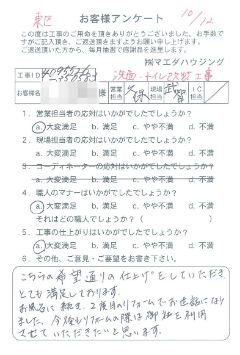 東区 お客様アンケート 10/12
この度は工事のご用命を頂きありがとうございました。お手数で
すがご記入頂き、ご返送頂きますようお願い申し上げます。
ご返送頂いた方から、毎月抽選で感謝品を呈します。
㈱マエダハウジング
工事ID 洗面・トイレ改装工事
お客様名 様 営業担当 久保 現場担当 武智 IC担当
1．営業担当者の応対はいかがでしたでしょうか？
a.大変満足 b.満足 c.やや不満 d.不満
2．現場担当者の応対はいかがでしたでしょうか？
a.大変満足 b.満足 c.やや不満 d.不満
3．コーディネーターの応対はいかがでしたでしょうか？
a.大変満足 b.満足 c.やや不満 d.不満
4．職人のマナーはいかがでしたでしょうか？
a.大変満足 b.満足 c.やや不満 d.不満
それはどの職人でしょうか？（ ）
5．工事の仕上がりはいかがでしたでしょうか？
a.大変満足 b.満足 c.やや不満 d.不満
6．その他、ご意見・ご要望をお書き下さい。
こちらの希望通りの仕上げをしていただき
とても満足しております。
お風呂に続き、2度目のリフォームでお世話になり
ました。今後もリフォームの際は御社を利用
させていただきたいと思います。